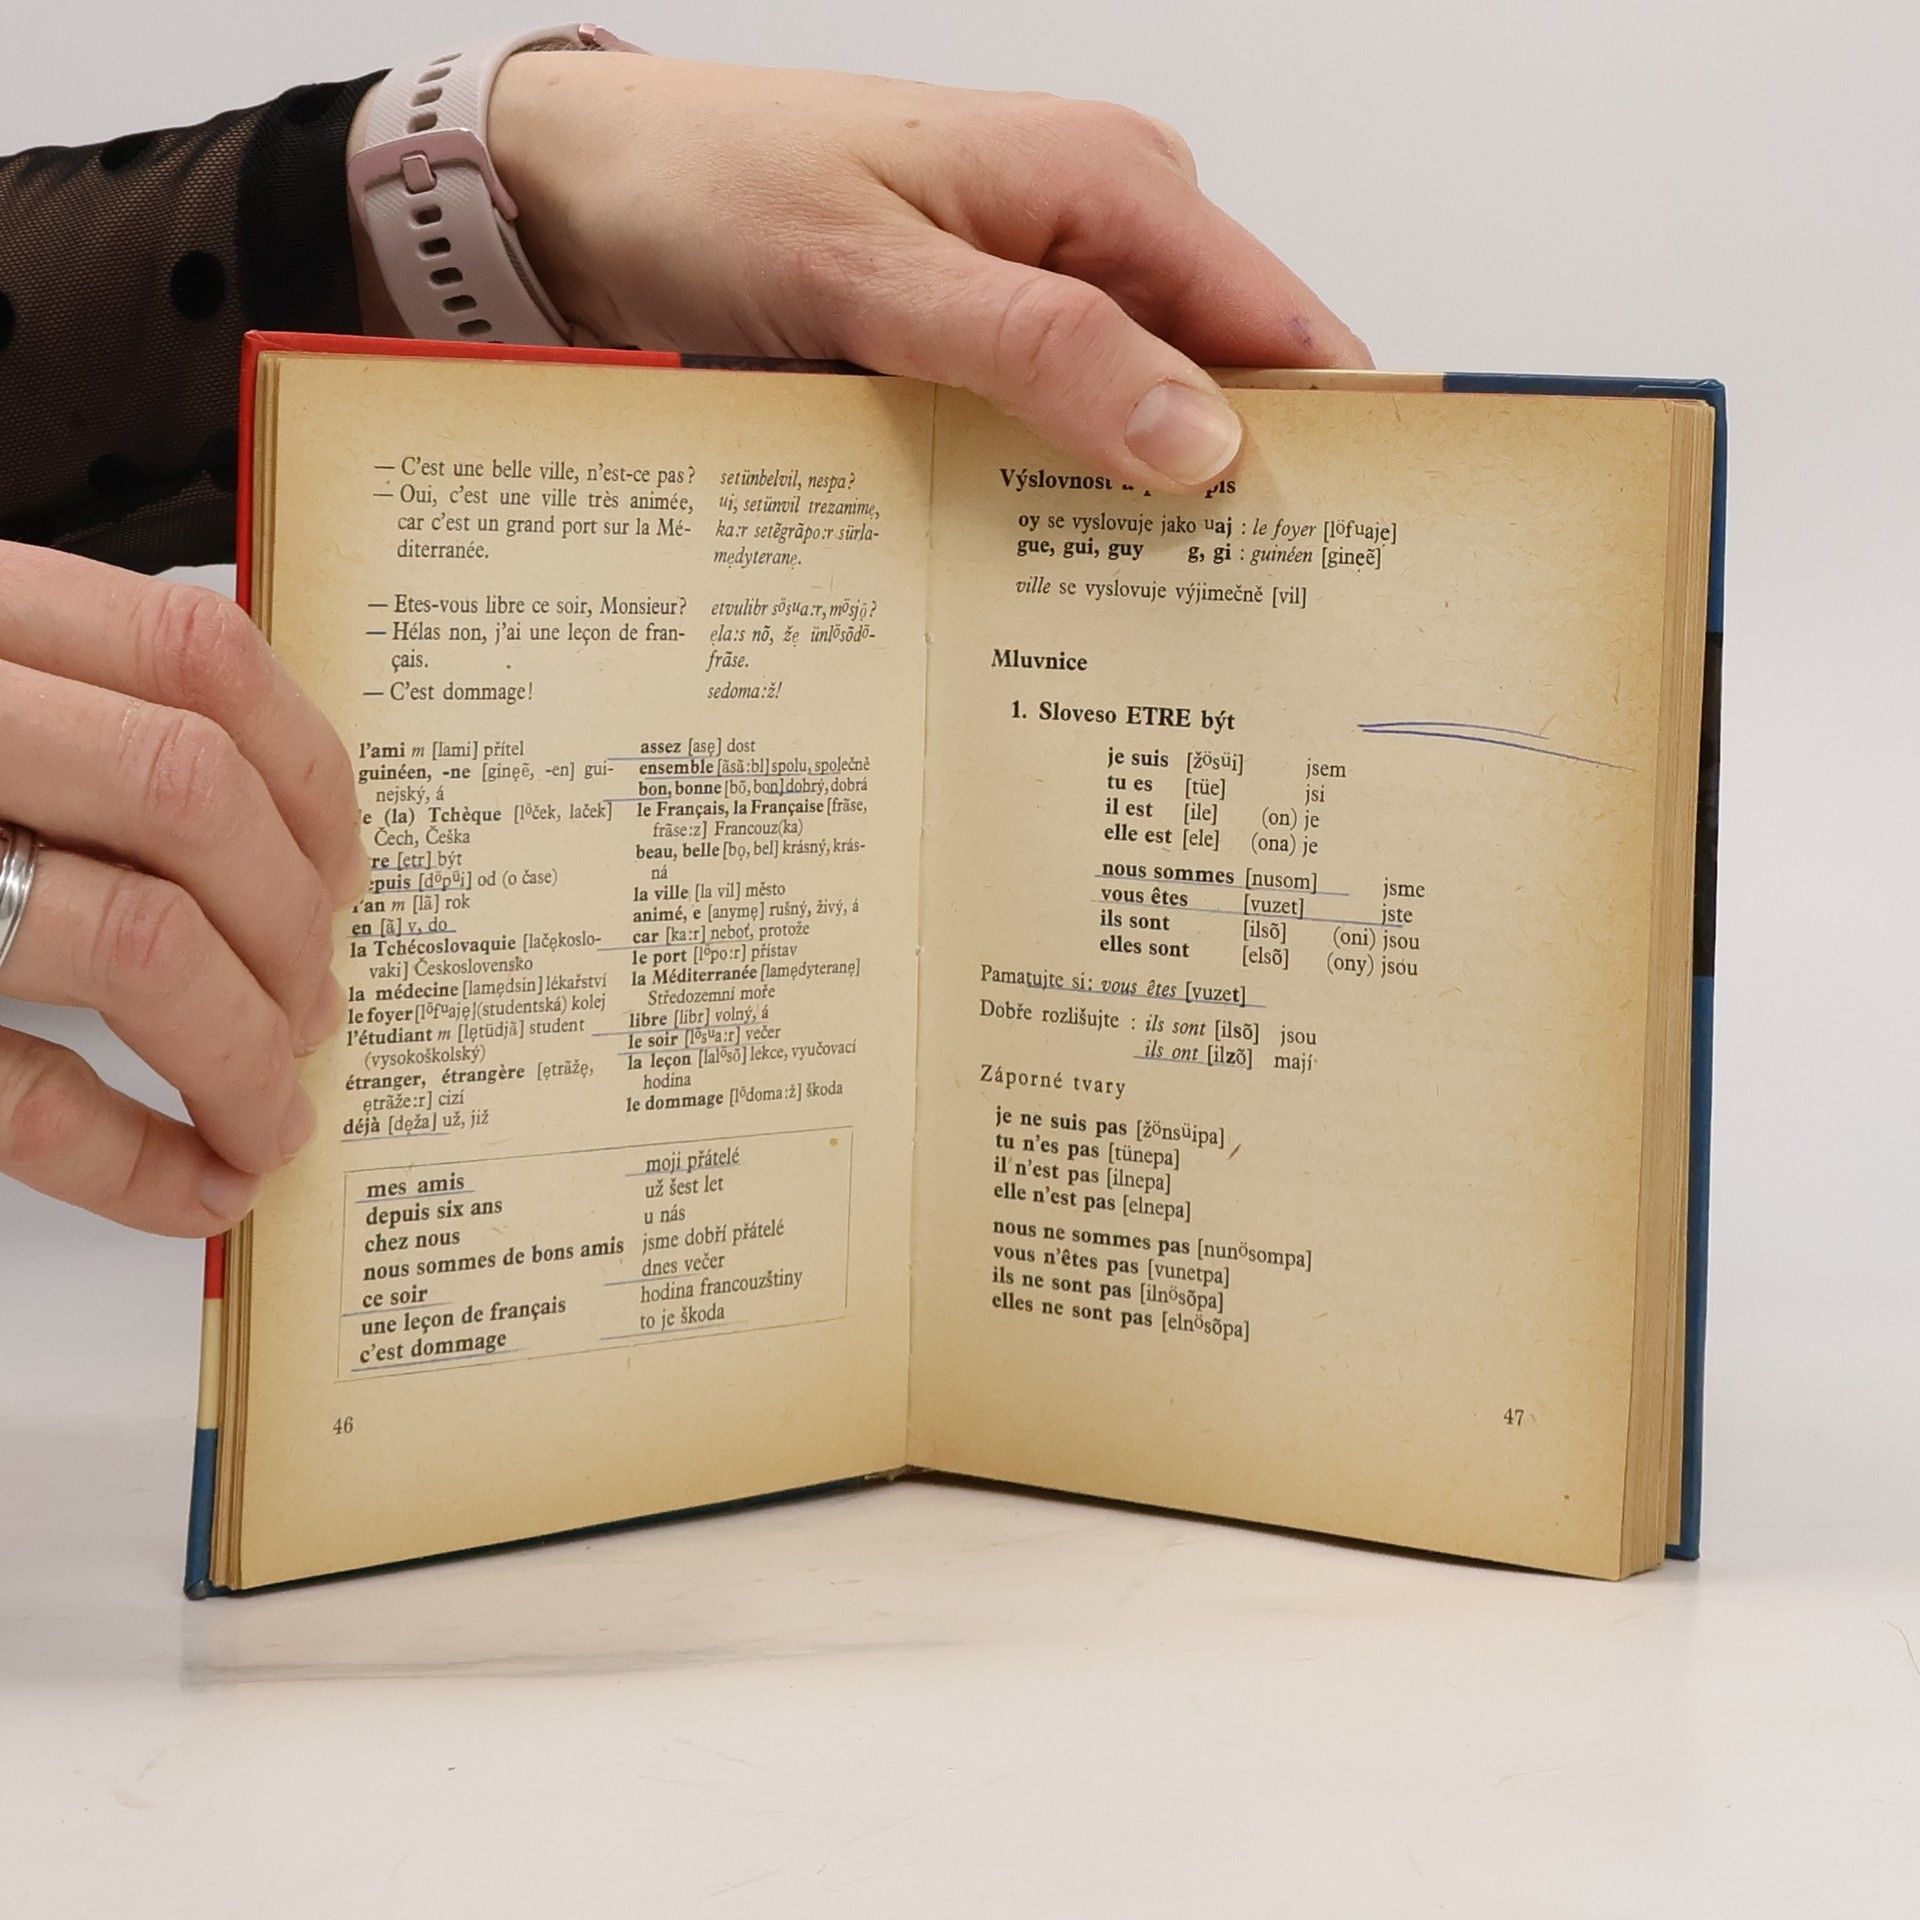 — C'est une belle ville, n'est-ce pas? setünbelvil, nespa?
— Oui, c'est une ville très animée, ui, setünvil trezanimę,
car c'est un grand port sur la Mé- ka:r setẽgrãpo:r sürla-
diterranée. mędyteranę.
— Etes-vous libre ce soir, Monsieur? etvulibr sösua:r, mösjö?
— Hélas non, j'ai une leçon de fran- ęla:s nõ, žę ünlösõdö-
çais. frãse.
— C'est dommage! sedoma:ž!
l'ami m [lami] přítel
guinéen, -ne [ginęẽ, -en] gui-
nejský, á
(la) Tchèque [löček, laček]
Čech, Češka
[etr] být
[döpüi] od (o čase)
l'an m [lã] rok
en [ã] v, do
la Tchécoslovaquie [lačękoslo-
vaki] Československo
la médecine [lamędsin] lékařství
le foyer [löfuaję] (studentská) kolej
l'étudiant m [lętüdjã] student
(vysokoškolský)
étranger, étrangère [ętrãžę,
ętrãže:r] cizí
déjà [dęža] už, již
assez [asę] dost
ensemble [ãsã:bl] spolu, společně
bon, bonne [bõ, bon] dobrý, dobrá
le Français, la Française [frãse,
frãse:z] Francouz(ka)
beau, belle [bo, bel] krásný, krás-
ná
la ville [la vil] město
animé, e [anymę] rušný, živý, á
car [ka:r] neboť, protože
le port [löpo:r] přístav
la Méditerranée [lamędyteranę]
Středozemní moře
libre [libr] volný, á
le soir [lösua:r] večer
la leçon [lalösõ] lekce, vyučovací
hodina
le dommage [lödoma:ž] škoda
mes amis moji přátelé
depuis six ans už šest let
chez nous u nás
nous sommes de bons amis jsme dobří přátelé
ce soir dnes večer
une leçon de français hodina francouzštiny
c'est dommage to je škoda
46
Výslovnost
oy se vyslovuje jako uaj : le foyer [löfuaję]
gue, gui, guy g, gi : guinéen [ginęẽ]
ville se vyslovuje výjimečně [vil]
Mluvnice
1. Sloveso ETRE být
je suis [žösüi] jsem
tu es [tüe] jsi
il est [ile] (on) je
elle est [ele] (ona) je
nous sommes [nusom] jsme
vous êtes [vuzet] jste
ils sont [ilsõ] (oni) jsou
elles sont [elsõ] (ony) jsou
Pamatujte si: vous êtes [vuzet]
Dobře rozlišujte : ils sont [ilsõ] jsou
ils ont [ilzõ] mají
Záporné tvary
je ne suis pas [žönsüipa]
tu n'es pas [tünepa]
il n'est pas [ilnepa]
elle n'est pas [elnepa]
nous ne sommes pas [nunösompa]
vous n'êtes pas [vunetpa]
ils ne sont pas [ilnösõpa]
elles ne sont pas [elnösõpa]
47